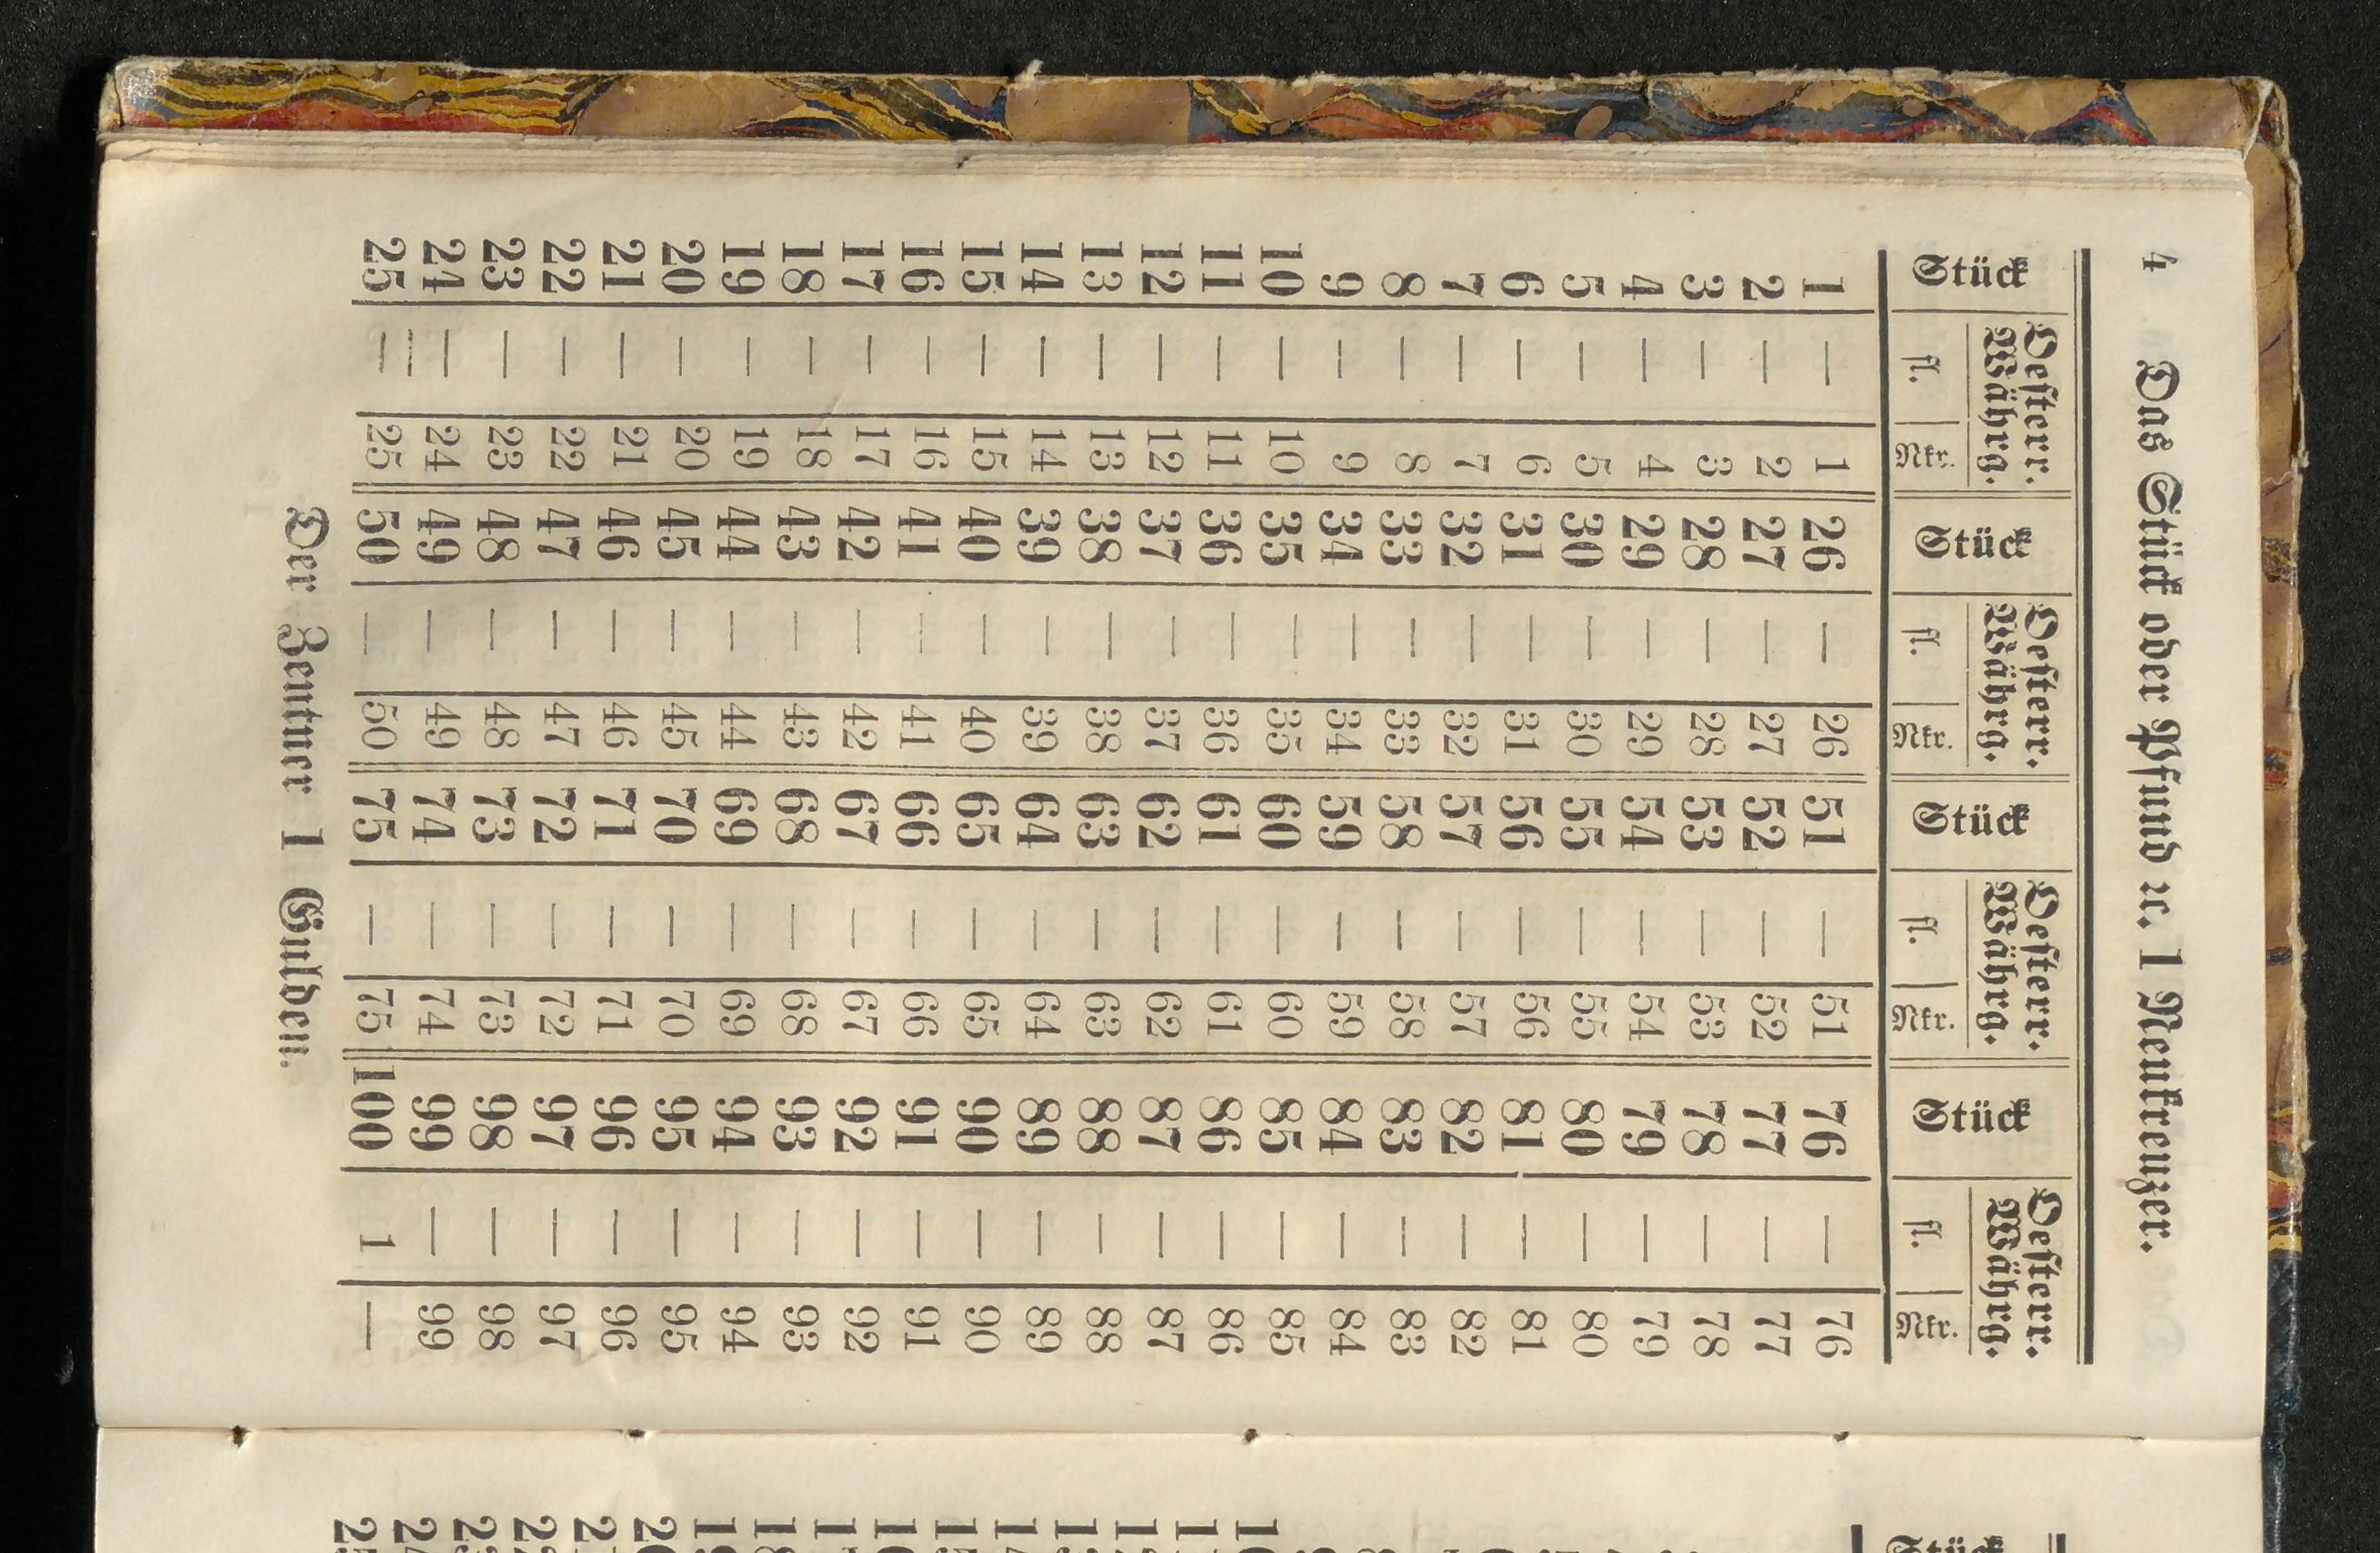 4 Das Stück oder Pfund ꝛc. 1 Neukreuzer.
Stück Oesterr. Währg. Stück Oesterr. Währg. Stück Oesterr. Währg. Stück Oesterr. Währg.
fl. Nkr. fl. Nkr. fl. Nkr. fl. Nkr.
1 — 1 26 — 26 51 — 51 76 — 76
2 — 2 27 — 27 52 — 52 77 — 77
3 — 3 28 — 28 53 — 53 78 — 78
4 — 4 29 — 29 54 — 54 79 — 79
5 — 5 30 — 30 55 — 55 80 — 80
6 — 6 31 — 31 56 — 56 81 — 81
7 — 7 32 — 32 57 — 57 82 — 82
8 — 8 33 — 33 58 — 58 83 — 83
9 — 9 34 — 34 59 — 59 84 — 84
10 — 10 35 — 35 60 — 60 85 — 85
11 — 11 36 — 36 61 — 61 86 — 86
12 — 12 37 — 37 62 — 62 87 — 87
13 — 13 38 — 38 63 — 63 88 — 88
14 — 14 39 — 39 64 — 64 89 — 89
15 — 15 40 — 40 65 — 65 90 — 90
16 — 16 41 — 41 66 — 66 91 — 91
17 — 17 42 — 42 67 — 67 92 — 92
18 — 18 43 — 43 68 — 68 93 — 93
19 — 19 44 — 44 69 — 69 94 — 94
20 — 20 45 — 45 70 — 70 95 — 95
21 — 21 46 — 46 71 — 71 96 — 96
22 — 22 47 — 47 72 — 72 97 — 97
23 — 23 48 — 48 73 — 73 98 — 98
24 — 24 49 — 49 74 — 74 99 — 99
25 — 25 50 — 50 75 — 75 100 1 —
Der Zentner 1 Gulden.
Stück